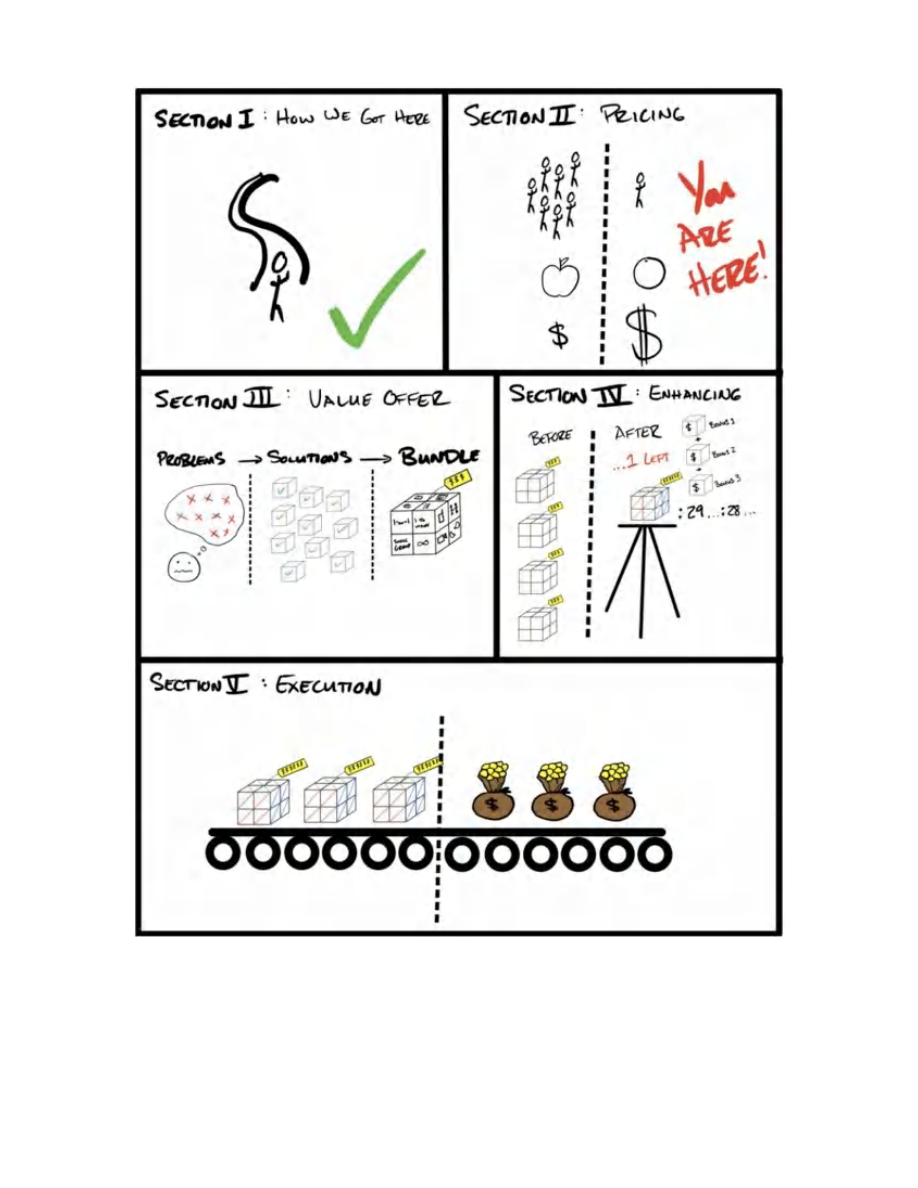 SECTION I : HOW WE GOT HERE
SECTION II : PRICING
YOU
ARE
HERE!
$ $
SECTION III : VALUE OFFER
PROBLEMS → SOLUTIONS → BUNDLE
$$$
SECTION IV : ENHANCING
BEFORE
AFTER
...1 LEFT
$ BONUS 1
+
$ BONUS 2
+
$ BONUS 3
:29...:28...
SECTION V : EXECUTION
$ $ $